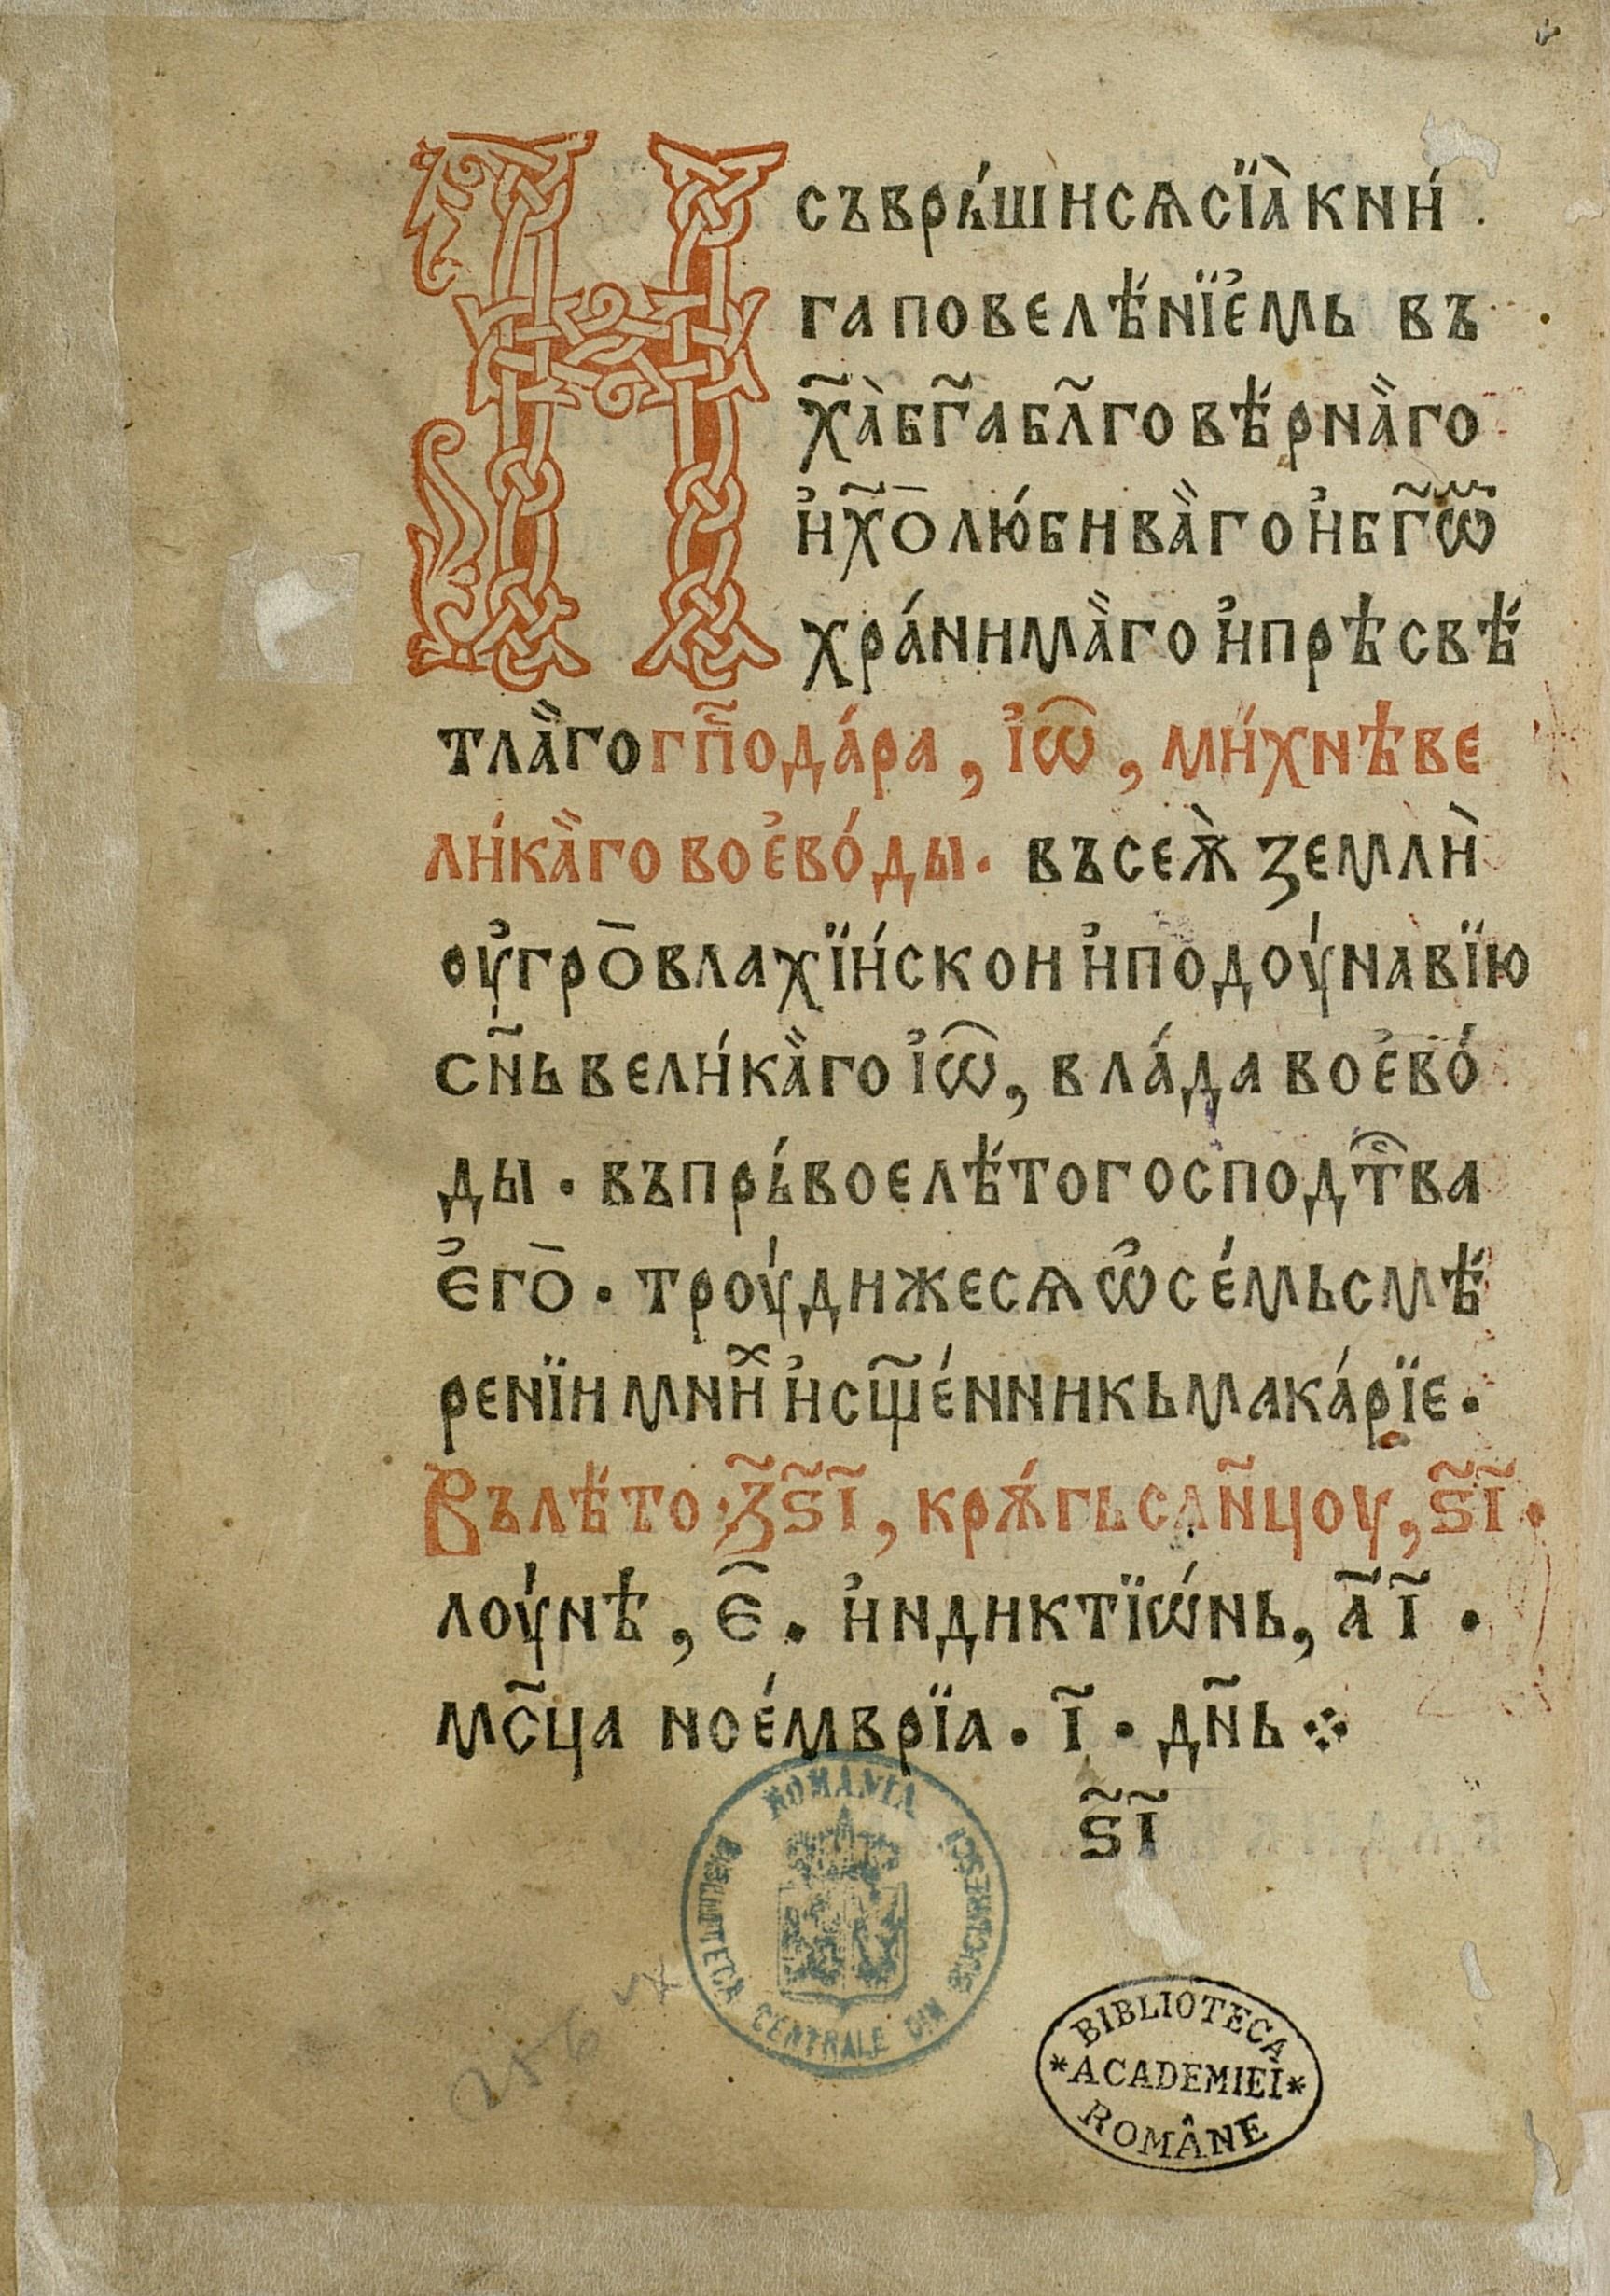 И съврь́шисѧсїа̀кни́
гаповелѣ́нїе҆мь въ
х҃а̀бг҃абл҃говѣ́рна̏го
и҆х҃олю́бива̏гои҆бг҃ѡ
хра́нима̏гои҆прѣсвѣ́
тла̏гогп҃ода́ра, і҆ѡ̑, ми́хнѣве
ли́ка̏говое҆во́ды. въсеѧ̀ земли̏
оу҆гро̅влахїи́скои и҆подоу́навїю
сн҃ьвели́ка̏гоі҆ѡ̑, вла́давое҆во́
ды. въпрь́воелѣ́тогосподт̑ва
є҆го̅. троу́дижесѧѡ҆се́мьсмѣ́
ренїимниⷯ и҆сщ҃е́нникьмака́рїе.
Вълѣ́то·҂з҃ѕ҃і҃, крѫ́гьслн҃цоу, ѕ҃і҃.
лоу́нѣ, є҃. и҆ндиктїѡ́нь, а҃і҃.
мс҃ца ное́мврїа. і҃. дн҃ь
ѕ҃і҃
ROMANIA
BIBLIOTECA CENTRALE DIN BUCURESCI
256
BIBLIOTECA
*ACADEMIEI*
ROMÂNE